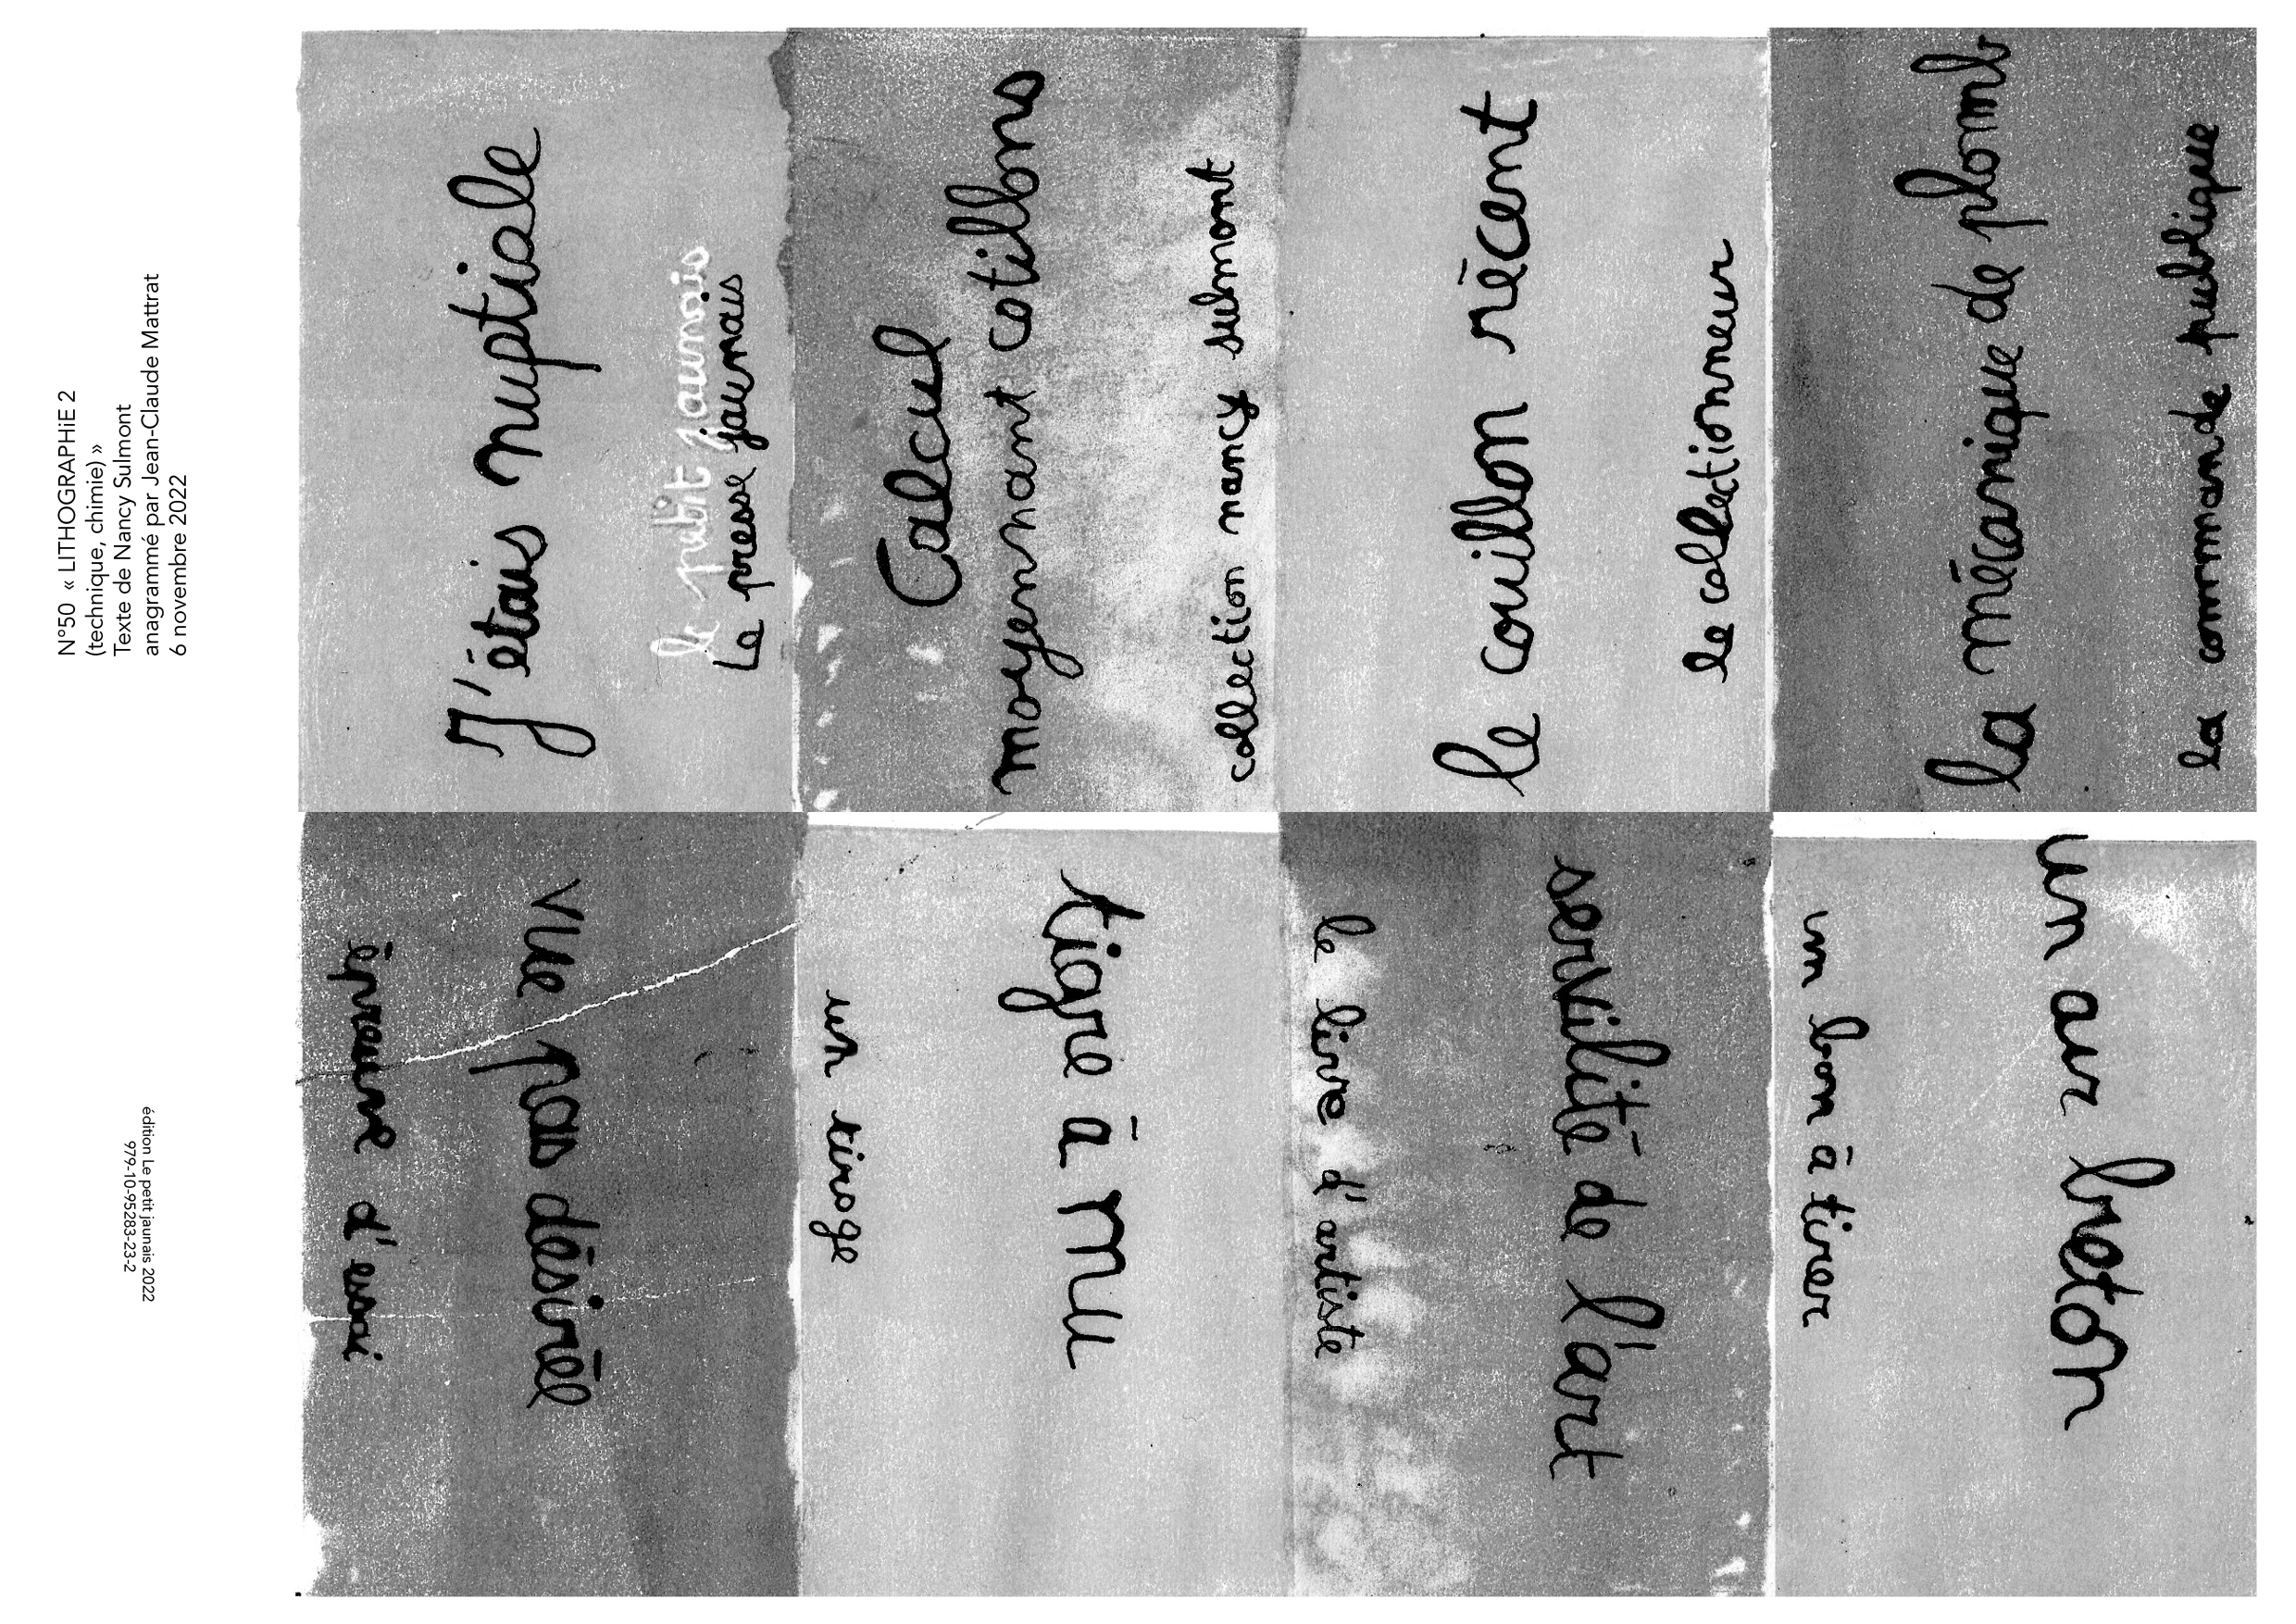 N°50 « LITHOGRAPHiE 2
(technique, chimie) »
Texte de Nancy Sulmont
anagrammé par Jean-Claude Mattrat
6 novembre 2022
J'étais nuptiale
le petit jaunais
La presse jaunais
Calcul
moyennant cotillons
collection nancy sulmont
le couillon récent
le collectionneur
la mécanique de plomb
la commande publique
un air breton
un bon à tirer
servilité de l'art
le livre d'artiste
tigre à nu
un tirage
vue pas désirée
épreuve d'essai
édition Le petit jaunais 2022
979-10-95283-23-2